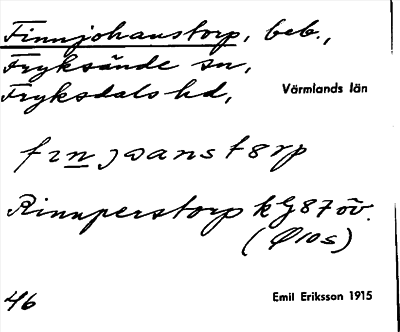 Finnjohanstorp, beb.,
Fryksände sn,
Fryksdals hd, Värmlands län
Rinnperstorp kG87öv.
(Ø10s)
46
Emil Eriksson 1915